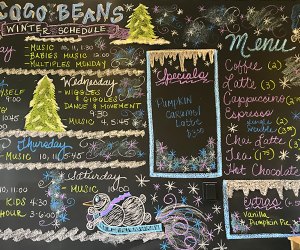 COCO BEANS
WINTER SCHEDULE
- MUSIC 10, 11, 1:30
- BABIES MUSIC 12:00
- MULTIPLES MONDAY
Wednesday
- WIGGLES
& GIGGLES
- DANCE & MOVEMENT
4:30
- MUSIC 4, 5:45
9:00
4:30
Thursday
- MUSIC 10, 11, 1:30
Saturday
- MUSIC
KIDS 4:30
HOUR 3-6:00
Specials
Pumpkin
Caramel
Latte!
Menu
Coffee (2)
Latte (3)
Cappuccino
Espresso
Chai Latte
Tea
Hot Chocolate
Extras
Vanilla
Pumpkin Pie